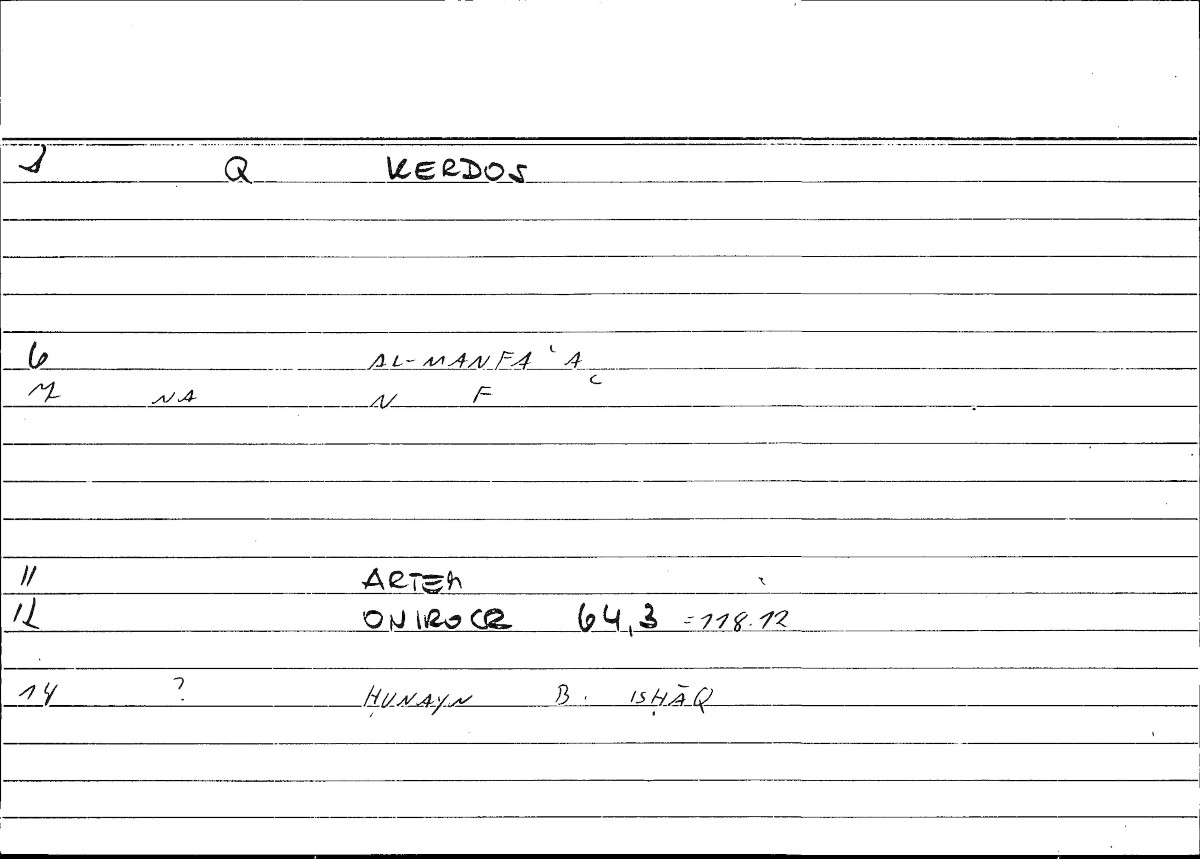 1 Q KERDOS
6 AL-MANFAʿA
7 NA N F ʿ
11 ARTEM
12 ONIROCR 64,3 =118.12
14 ? ḤUNAYN B. ISḤĀQ